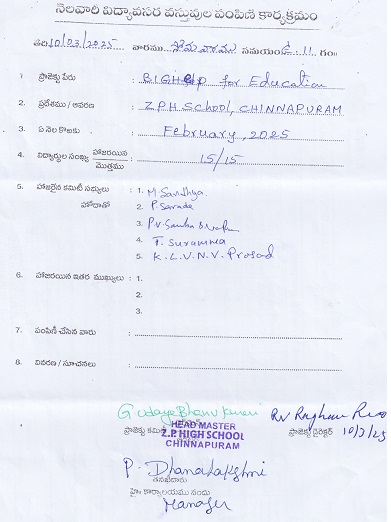 నెలవారి విద్యావసర వస్తువుల పంపిణీ కార్యక్రమం
తేది 10/03/2025 వారము సోమవారము సమయం 11 గం॥
1 ప్రాజెక్టు పేరు : BIGHELP for Education
2. ప్రదేశము / ఆవరణ : Z.P.H SCHOOL, CHINNAPURAM
3. ఏ నెల కొఱకు : February, 2025
4. విద్యార్థుల సంఖ్య హాజరయిన / మొత్తము : 15/15
5. హాజరైన కమిటీ సభ్యులు : 1. M Sandhya
హోదాతో 2. P Sarada
3.
4. T. Suramma
5. K.L.V.N.V. Prasad
6. హాజరయిన ఇతర ముఖ్యులు : 1.
2.
3.
7. పంపిణీ చేసిన వారు :
8. వివరణ / సూచనలు :
G Udaya Bhanu Kumari RV Raghava Rao
ప్రాజెక్టు కమిటీ HEAD MASTER ప్రాజెక్టు డైరెక్టర్ 10/3/25
Z.P. HIGH SCHOOL
CHINNAPURAM
P. Dhanalakshmi
హై॥ కార్యాలయము నందు
Manager